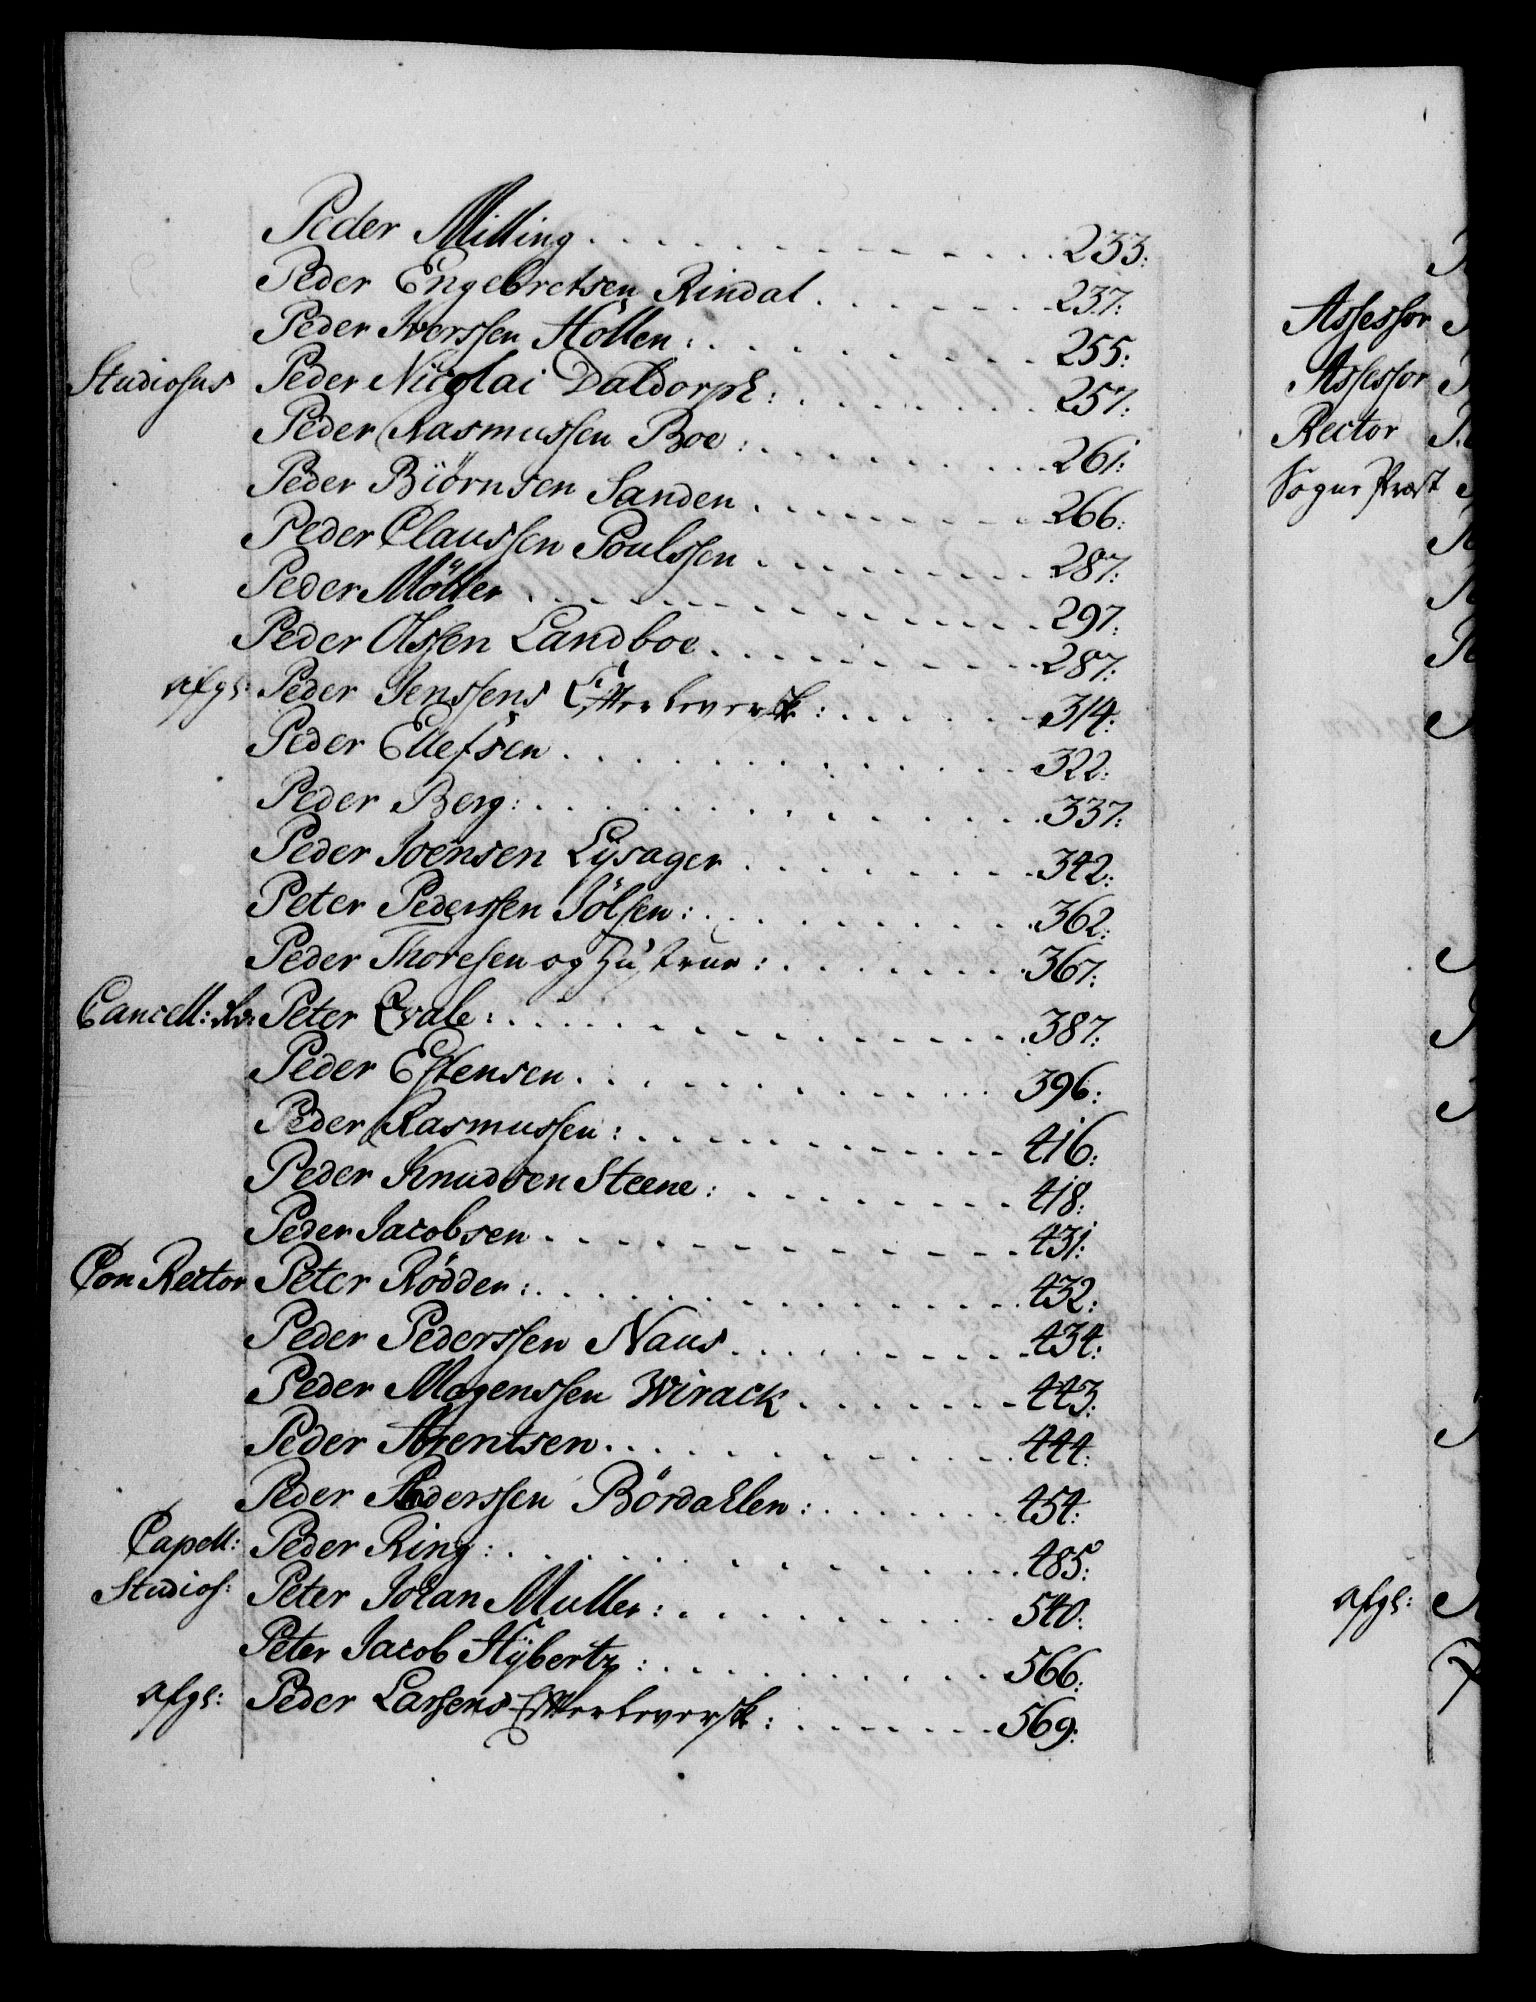 Peder Milling . . . . . . . . . . . . 233:
Peder Engebretsen Rindal . . . . . . 237:
Peder Iverssen Hollen: . . . . . . . . 255:
Studiosus Peder Nicolai Daldorph: . . . . . . 257:
Peder Rasmussen Boe: . . . . . . . . 261:
Peder Biörnsen Sanden . . . . . . . . 266:
Peder Claussen Poulssen . . . . . . . 287:
Peder Möller . . . . . . . . . . . . . 297:
Peder Olssen Landboe . . . . . . . . . 287:
afgl: Peder Jenssens Efterleversk: . . . . . 314:
Peder Ellefsen . . . . . . . . . . . . 322:
Peder Berg: . . . . . . . . . . . . . 337:
Peder Joensen Lysager . . . . . . . . 342:
Peter Pederssen Jölsen: . . . . . . . . 362:
Peder Thoresen og Hustrue: . . . . . . . 367:
Cancell: Rd: Peter Qvale: . . . . . . . . . . . 387:
Peder Estensen . . . . . . . . . . . . 396:
Peder Rasmussen: . . . . . . . . . . . 416:
Peder Knudsen Steene: . . . . . . . . . 418:
Peder Jacobsen . . . . . . . . . . . . 431:
Con Rector Peter Rödder: . . . . . . . . . . . . 432:
Peder Pederssen Naus . . . . . . . . . 434:
Peder Mogenssen Wirack . . . . . . . . 443:
Peder Arentsen . . . . . . . . . . . . 444:
Peder Pederssen Bördahlen: . . . . . . . 454:
Capell: Peder Ring: . . . . . . . . . . . . 485:
Studios: Peter Johan Muller: . . . . . . . . . 540:
Peter Jacob Hÿbertz: . . . . . . . . . 566:
afgl: Peder Larsens Efterleversk: . . . . . . 569:
Assessor
Assessor
Rector
Sogne Præst
afgl: